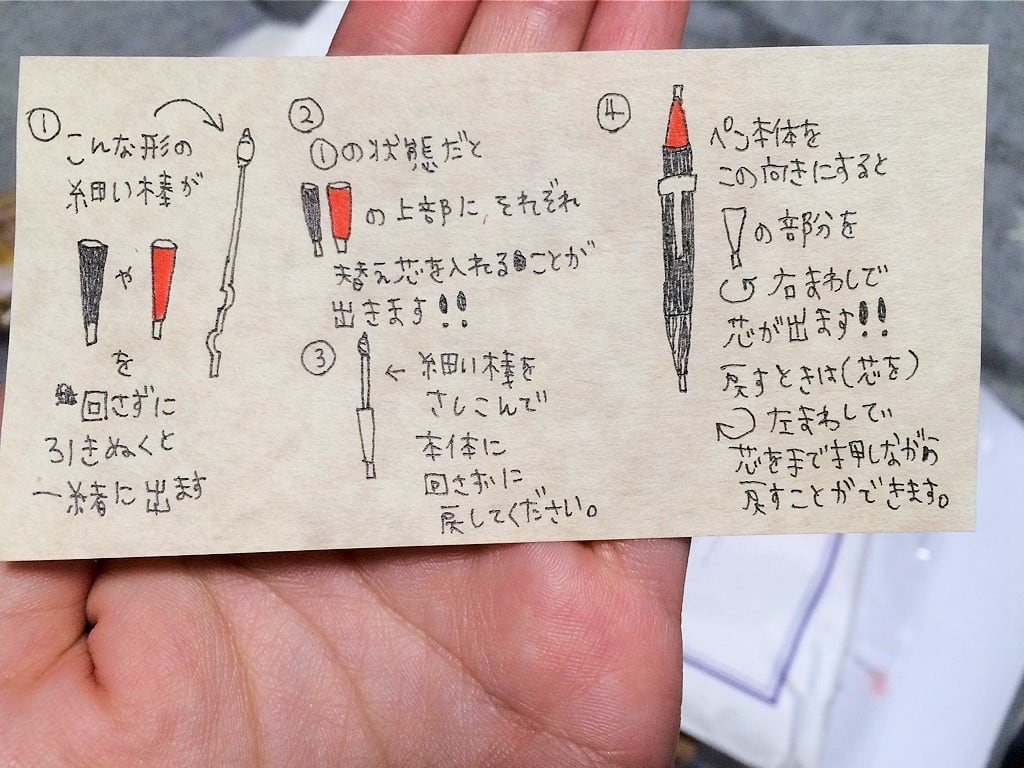 ①
こんな形の
細い棒が
や
を
回さずに
引きぬくと
一緒に出ます
②
①の状態だと
の上部に、それぞれ
替え芯を入れることが
出来ます!!
③
← 細い棒を
さしこんで
本体に
回さずに
戻してください。
④
ペン本体を
この向きにすると
の部分を
右まわしで
芯が出ます!!
戻すときは(芯を)
左まわしで
芯を手で押しながら
戻すことができます。